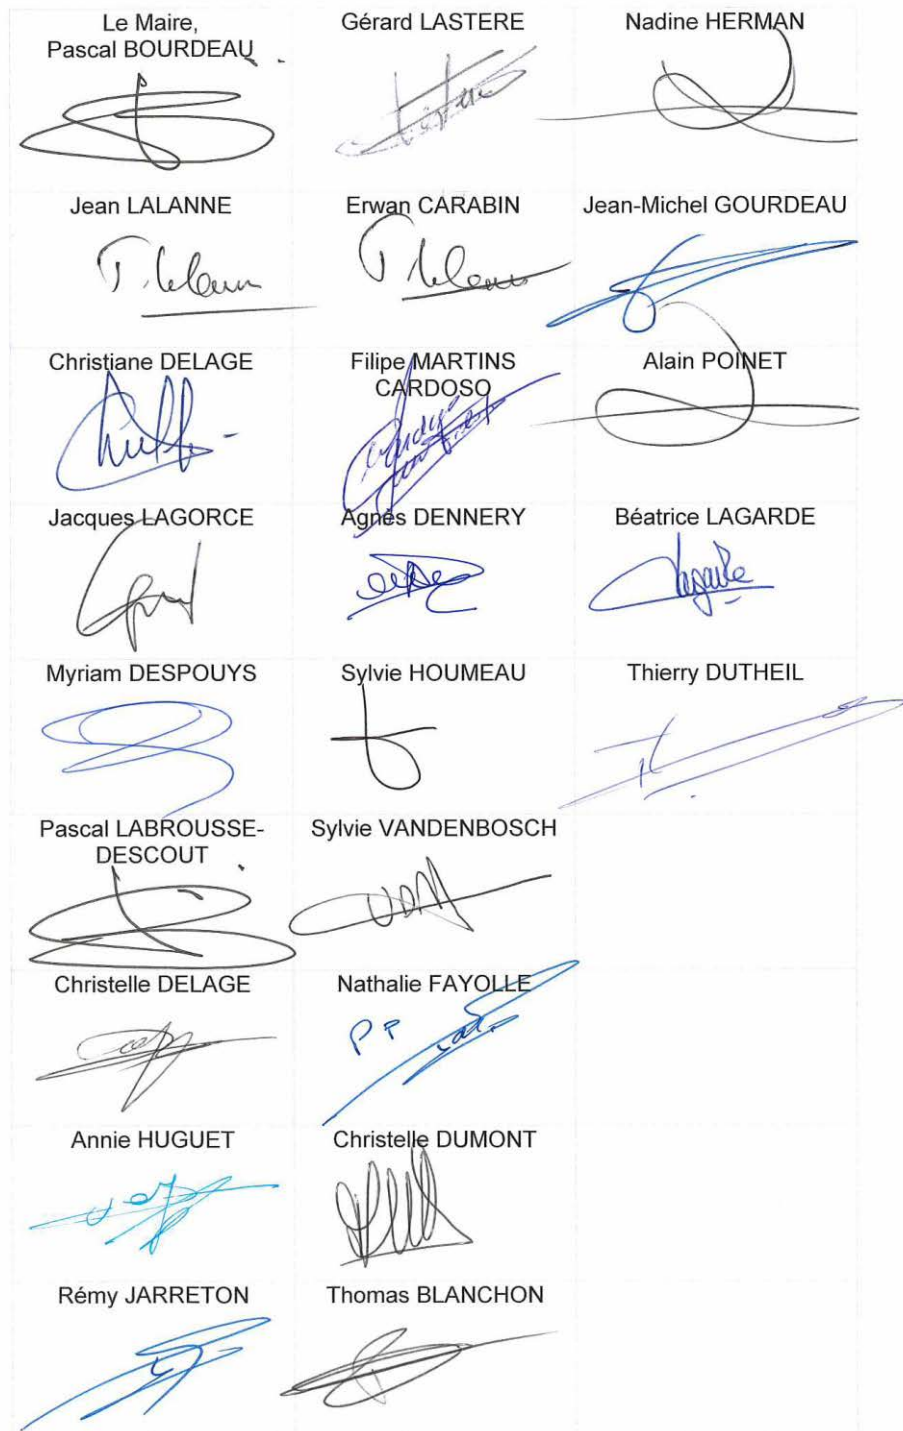 Le Maire,
Pascal BOURDEAU
Gérard LASTERE
Nadine HERMAN
Jean LALANNE
Erwan CARABIN
Jean-Michel GOURDEAU
Christiane DELAGE
Filipe MARTINS
CARDOSO
Alain POINET
Jacques LAGORCE
Agnès DENNERY
Béatrice LAGARDE
Lagarde
Myriam DESPOUYS
Sylvie HOUMEAU
Thierry DUTHEIL
Pascal LABROUSSE-
DESCOUT
Sylvie VANDENBOSCH
Christelle DELAGE
Nathalie FAYOLLE
PP
Annie HUGUET
Christelle DUMONT
Rémy JARRETON
Thomas BLANCHON